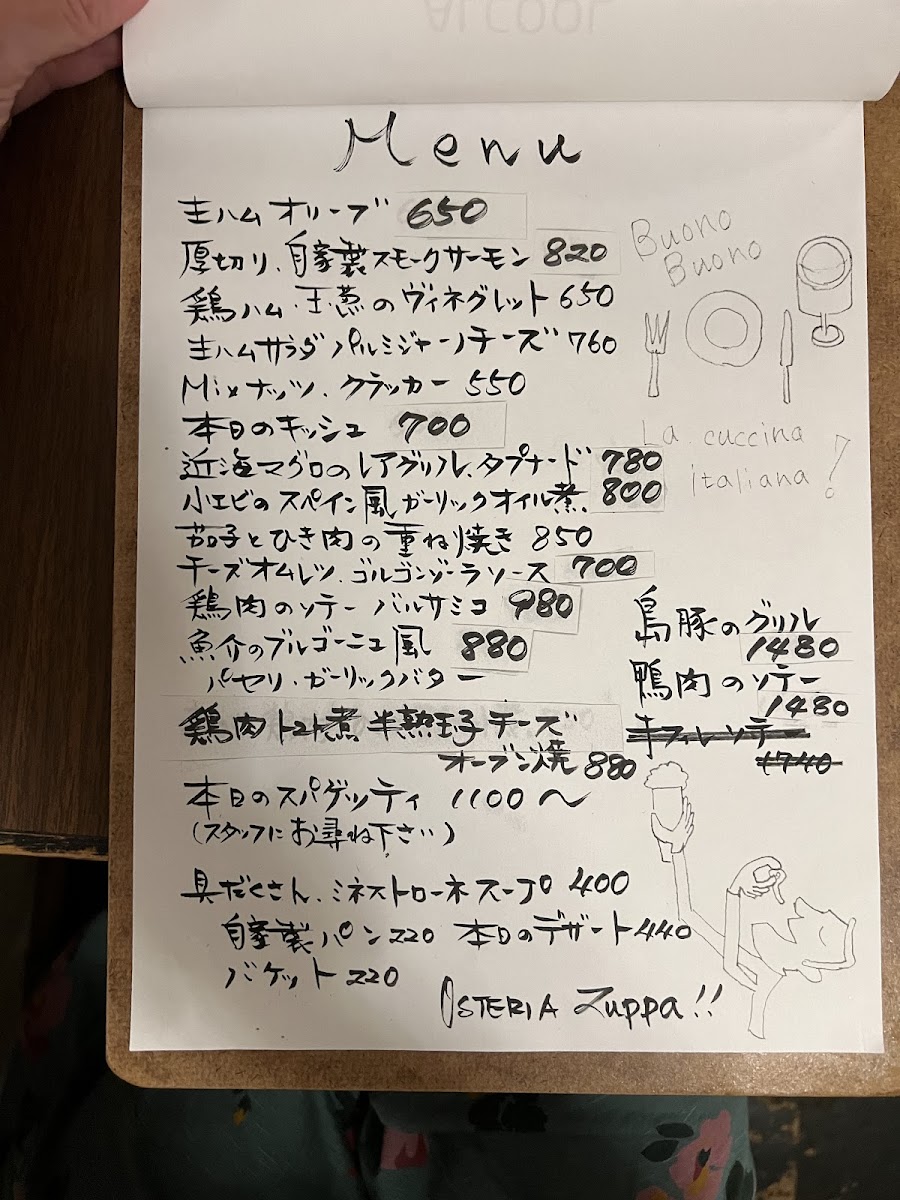 ALCOOL
Menu
生ハム オリーブ 650
厚切り、自家製スモークサーモン 820
鶏ハム・玉葱のヴィネグレット 650
生ハムサラダ パルミジャーノチーズ 760
Mixナッツ、クラッカー 550
本日のキッシュ 700
近海マグロのレアグリル、タプナード 780
小エビのスペイン風ガーリックオイル煮 800
茄子とひき肉の重ね焼き 850
チーズオムレツ、ゴルゴンゾーラソース 700
鶏肉のソテー バルサミコ 980
魚介のブルゴーニュ風 880
パセリ・ガーリックバター
鶏肉トマト煮 半熟玉子 チーズ
オーブン焼 880
本日のスパゲッティ 1100〜
(スタッフにお尋ね下さい)
具だくさん、ミネストローネスープ 400
自家製パン 220 本日のデザート 440
バゲット 220
OSTERIA Zuppa!!
Buono
Buono
La cuccina
italiana!
島豚のグリル
1480
鴨肉のソテー
1480
牛フィレソテー
1740